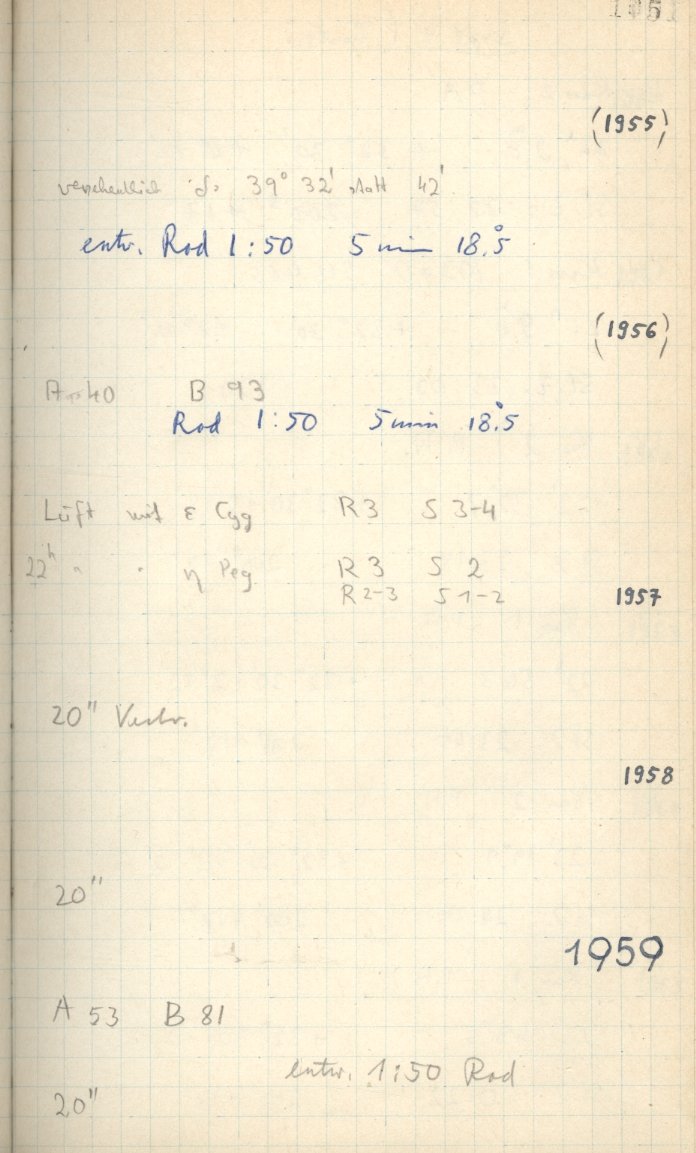 (1955)
versehentlich δ: 39° 32' statt 42'
entw. Rod 1:50 5 min 18.°5
(1956)
A 40 B 93
Rod 1:50 5 min 18.°5
Luft mit ε Cyg R 3 S 3-4
22h " " η Peg. R 3 S 2
R 2-3 S 1-2
1957
20" Verbr.
1958
20"
1959
A 53 B 81
entw. 1:50 Rod
20"